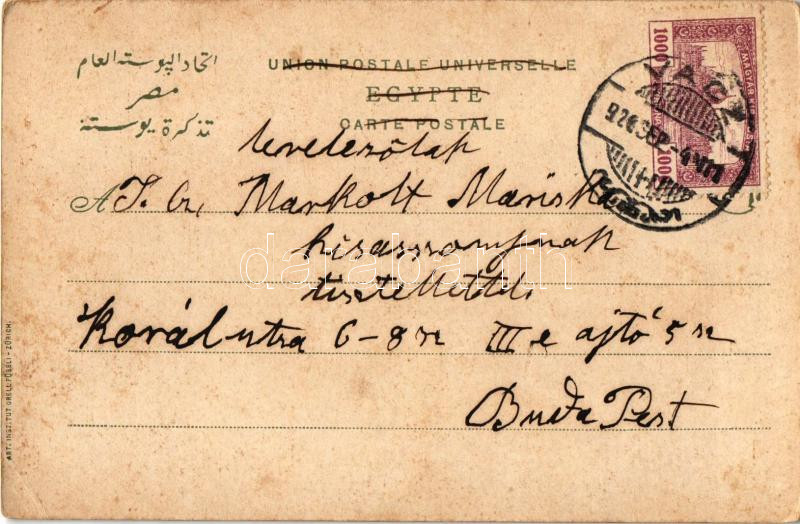 اتحاد البوسته العام
مصر
تذكرة بوستة
UNION POSTALE UNIVERSELLE
EGYPTE
CARTE POSTALE
levelezőlap
A T. cz. Markolt Mariska
kisasszonynak
tisztelettel
Korál utra 6-8 sz III e ajtó 5 sz
Buda Pest
1000
MAGYAR KIR
VÁCZ
darabanth
ART. INSTITUT ORELL FÜSSLI - ZÜRICH.